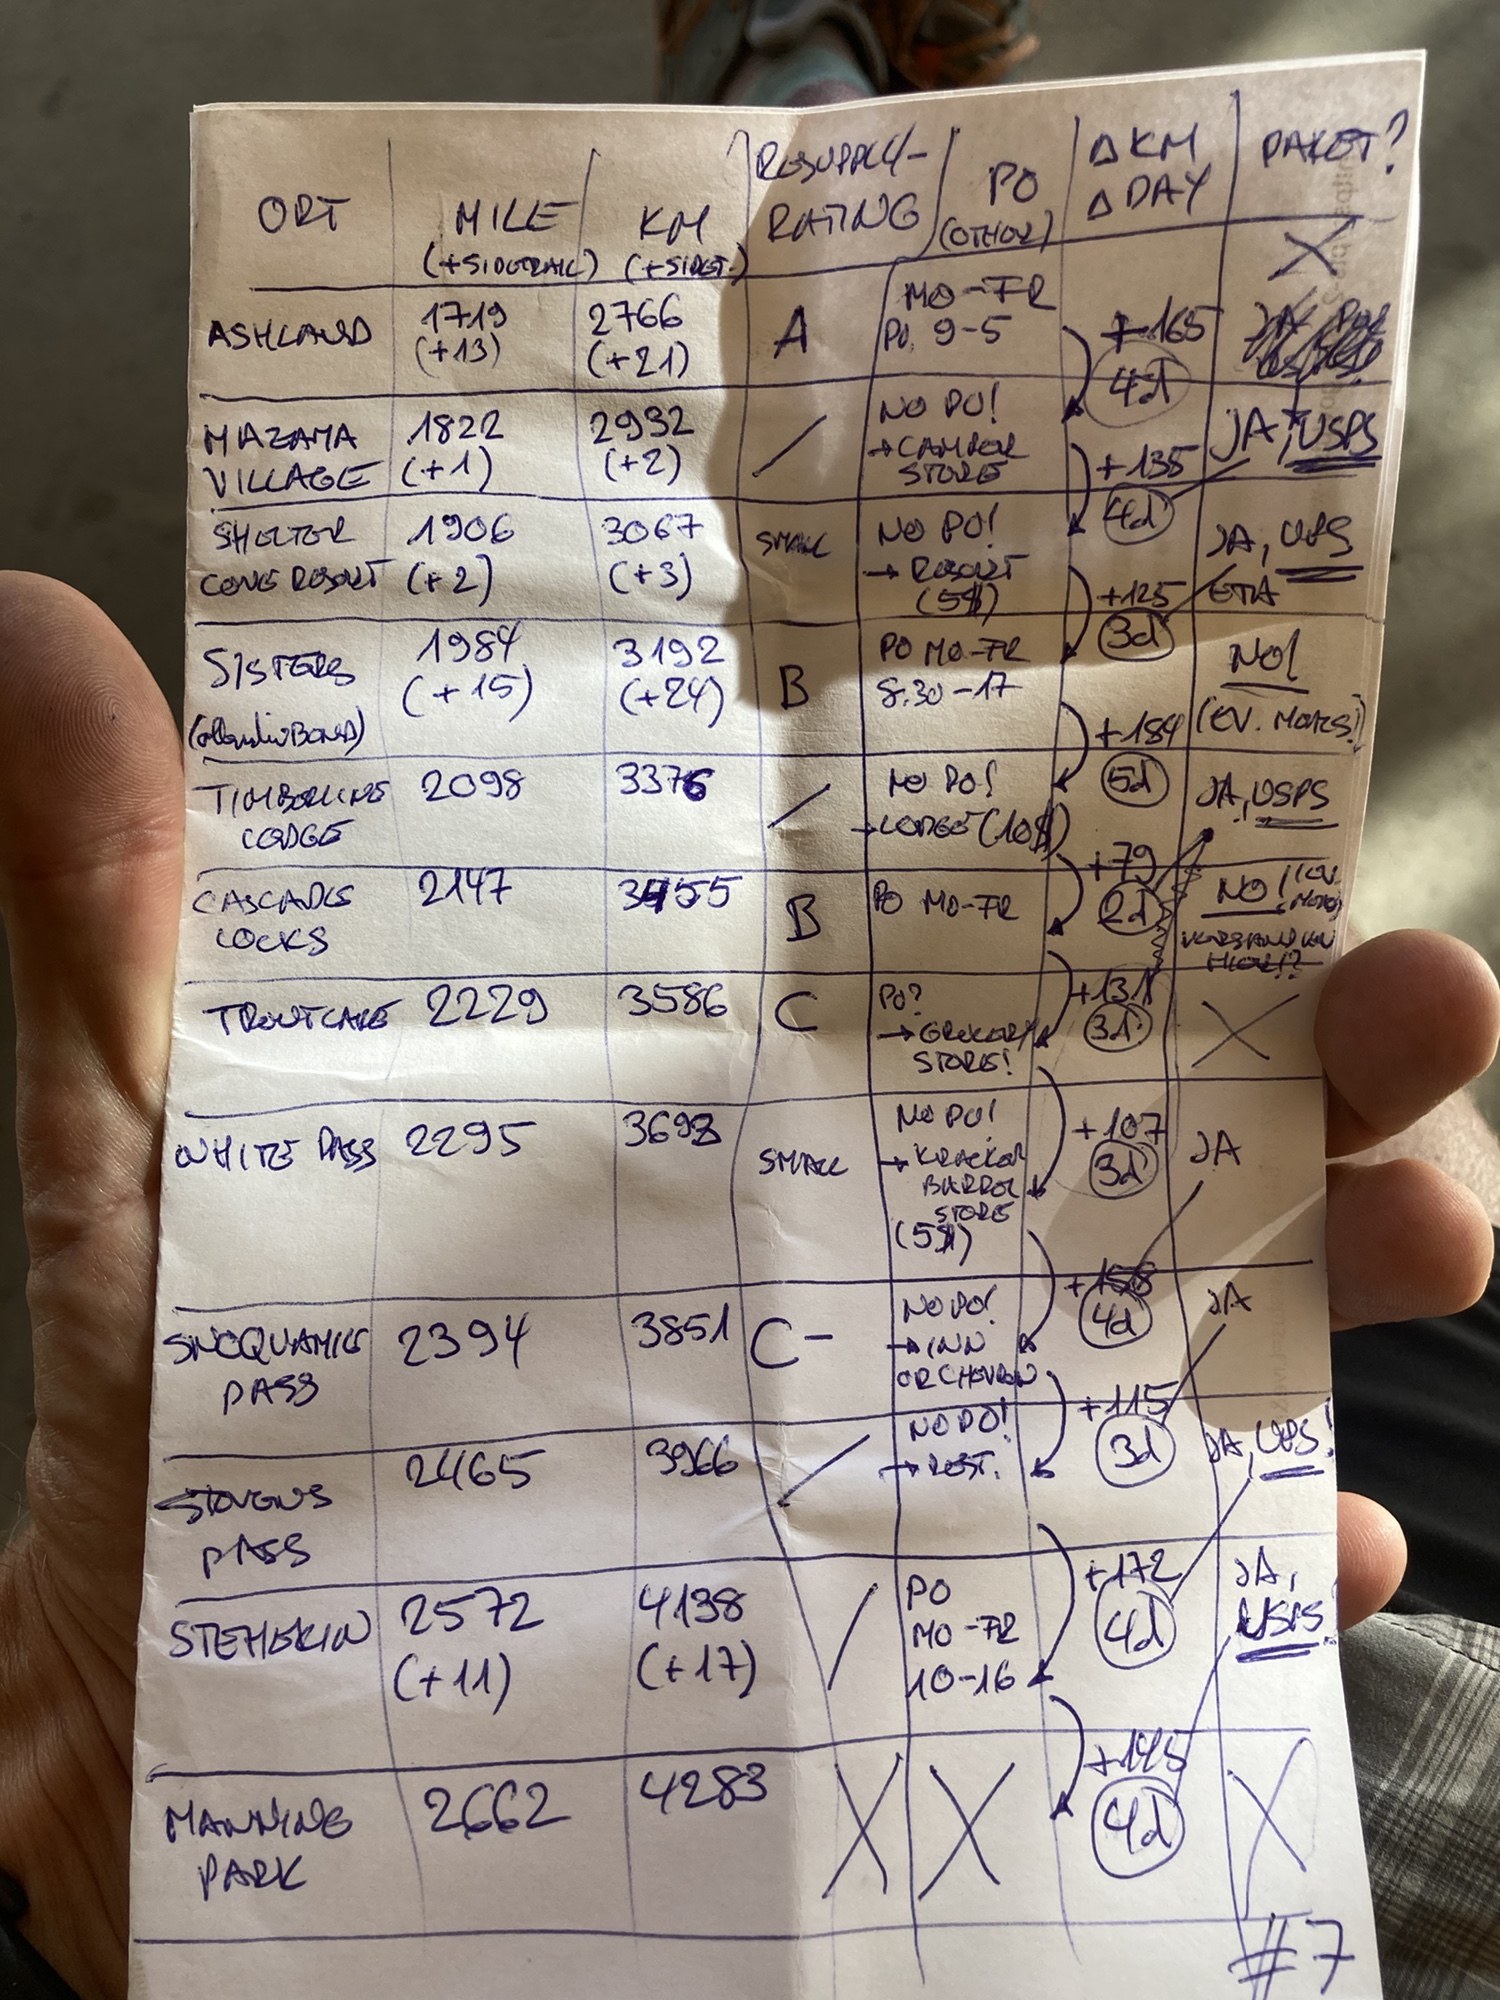 ORT
MILE
(+SIDETRAIL)
KM
(+SIDET.)
RESUPPLY-
RATING
PO
(OTHER)
Δ KM
Δ DAY
PAKET?
ASHLAND
1719
(+13)
2766
(+21)
A
MO-FR
PO 9-5
+165
4d
X
MAZAMA
VILLAGE
1822
(+1)
2932
(+2)
/
NO PO!
→ CAMPER
STORE
+135
4d
JA, USPS
SHELTER
COVE RESORT
1906
(+2)
3067
(+3)
SMALL
NO PO!
→ RESORT
(5$)
+125
3d
JA, UPS
ETA
SISTERS
1984
(+15)
3192
(+24)
B
PO MO-FR
8.30-17
+184
5d
NO!
(EV. MORES!)
TIMBERLINE
LODGE
2098
3376
/
NO PO!
→ LODGE (10$)
+79
2d
JA, USPS
CASCADE
LOCKS
2147
3455
B
PO MO-FR
+131
3d
NO!
TROUTLAKE
2229
3586
C
PO?
→ GROCERY
STORE!
+107
3d
X
WHITE PASS
2295
3693
SMALL
NO PO!
→ KRACKER
BARREL
STORE
(5$)
+158
4d
JA
SNOQUAMIE
PASS
2394
3851
C-
NO PO!
→ INN
OR CHEVRON
+115
3d
JA
STEVENS
PASS
2465
3966
/
NO PO!
→ REST.
+172
4d
JA, UPS!
STEHEKIN
2572
(+11)
4138
(+17)
/
PO
MO-FR
10-16
+145
4d
JA,
USPS!
MANNING
PARK
2662
4283
X
X
X
#7